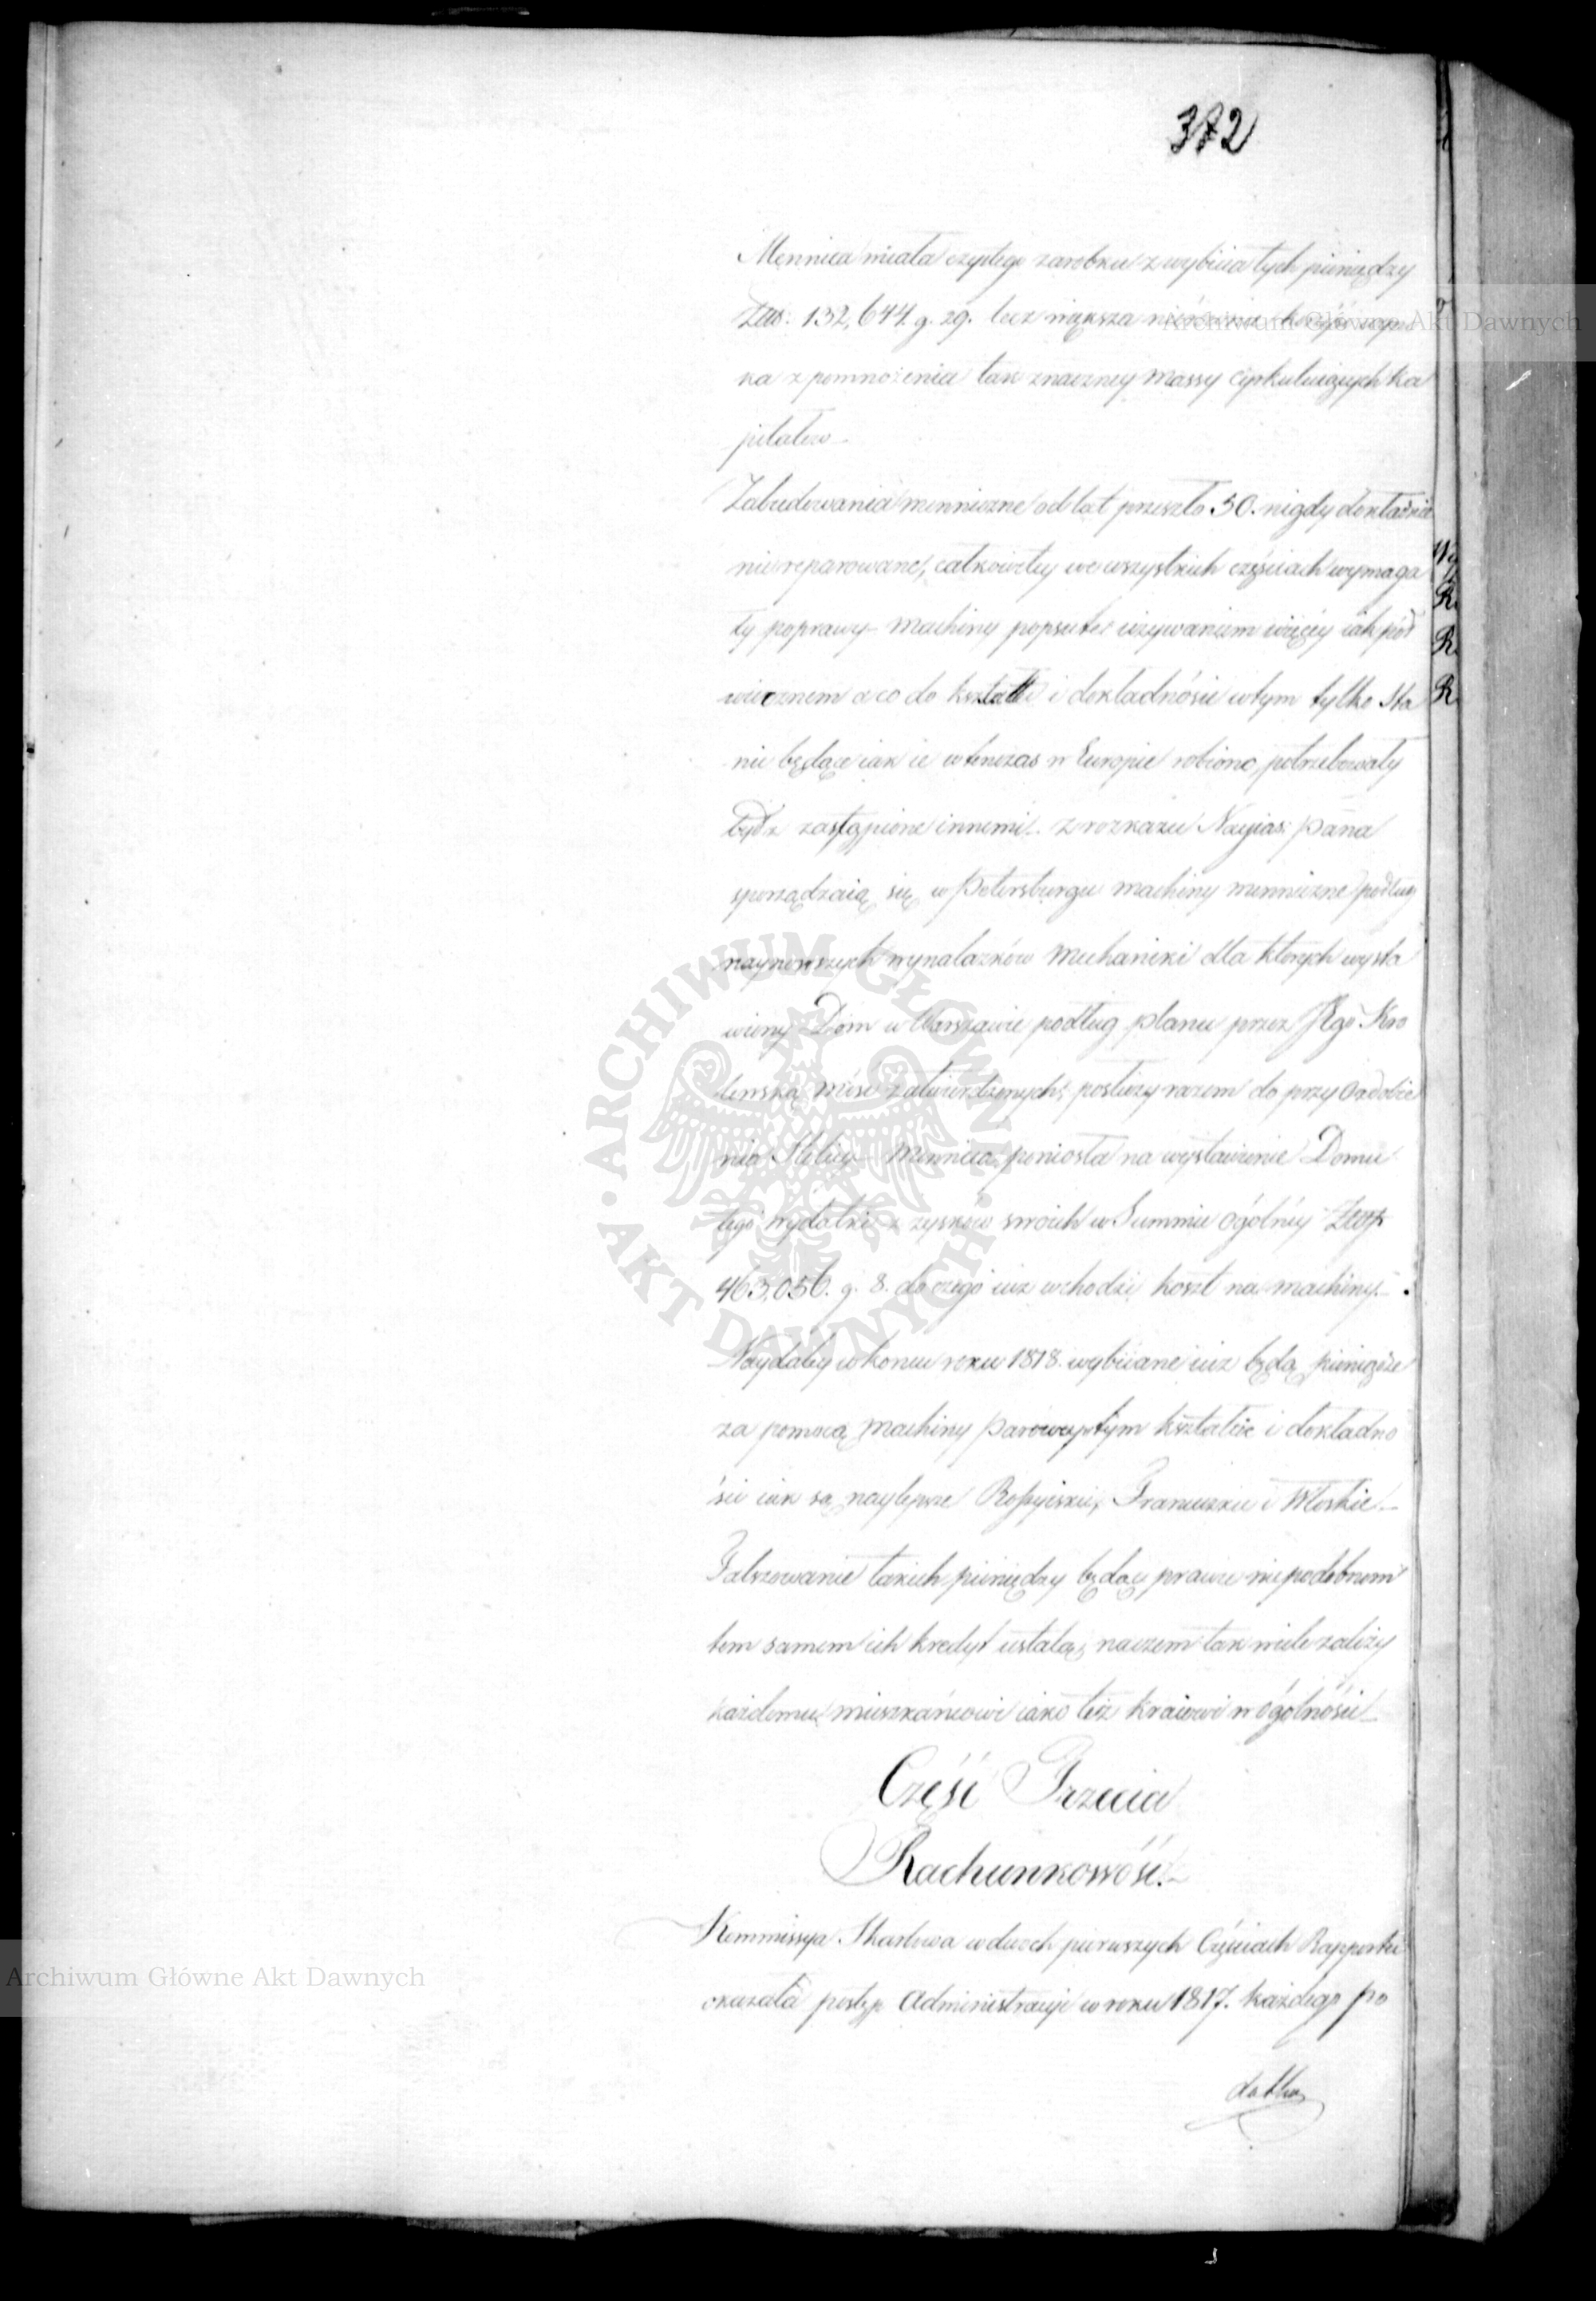 372
Mennica miała czystego zarobku z wybicia tych pieniędzy
Złłs: 132,644 g. 29. lecz większa nierównie korzyść wyni
ka z pomnożenia tak znaczney massy cyrkuluiących ka
pitałow.
Zabudowania mennicze od lat przeszło 50. nigdy dokładnie
niereparowane, całkowitey we wszystkich częściach wymaga
ły poprawy – machiny popsute używaniem więcey iak pół
wiecznem a co do kształtu i dokładności w tym tylko sta
nie będące iak ie wtenczas w Europie robiono, potrzebowały
bydź zastąpione innemi. z rozkazu Nayias: Pana
sporządzaią się w Petersburgu machiny mennicze podług
naynowszych wynalazków mechaniki dla ktorych wysta
wiony Dom w Warszawie podług planu przez JKgo Kro
lewską mość zatwierdzonych, posłuży razem do przyozdobie
nia Stolicy – Mennica poniosła na wystawienie Domu
tego wydatki z zysków swoich w Summie ogólney Złotp
463,056. g. 8. do czego iuż wchodzi koszt na machiny. –
Naydaley w koncu roku 1818. wybiiane iuż będą pieniądze
za pomocą machiny parowey w tym kształcie i dokładno
ści iak są naylepsze Rossyiskie, Francuzkie i Włoskie –
Fałszowanie takich pieniędzy będąc prawie niepodobnem
tem samem ich kredyt ustala, na czem tak wiele zależy
każdemu mieszkańcowi iako też kraiowi w ogólności –
Część Trzecia
Rachunkowość. –
Kommissya Skarbowa w dwóch pierwszych Częściach Rapportu
okazała postęp Administracyi w roku 1817. każdego po
datku
Wy
R
R
R
Archiwum Główne Akt Dawnych
ARCHIWUM GŁÓWNE · AKT DAWNYCH ·
Archiwum Główne Akt Dawnych